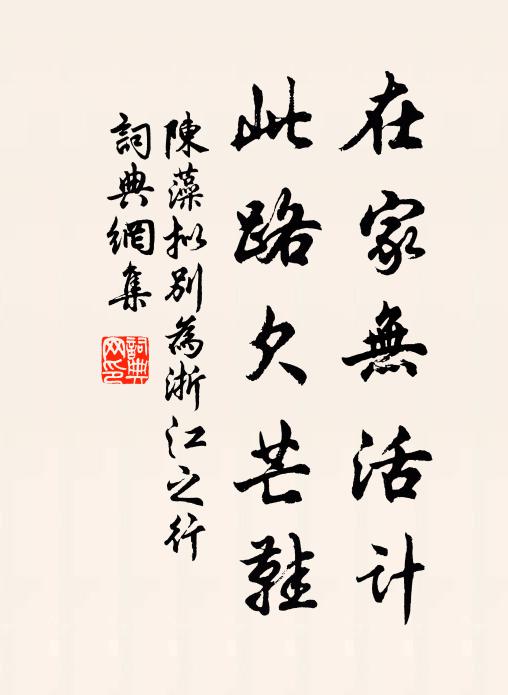 在家無活計
此路欠芒鞋
陳藻拟別為浙江之行
詞典網集
詞典
网印